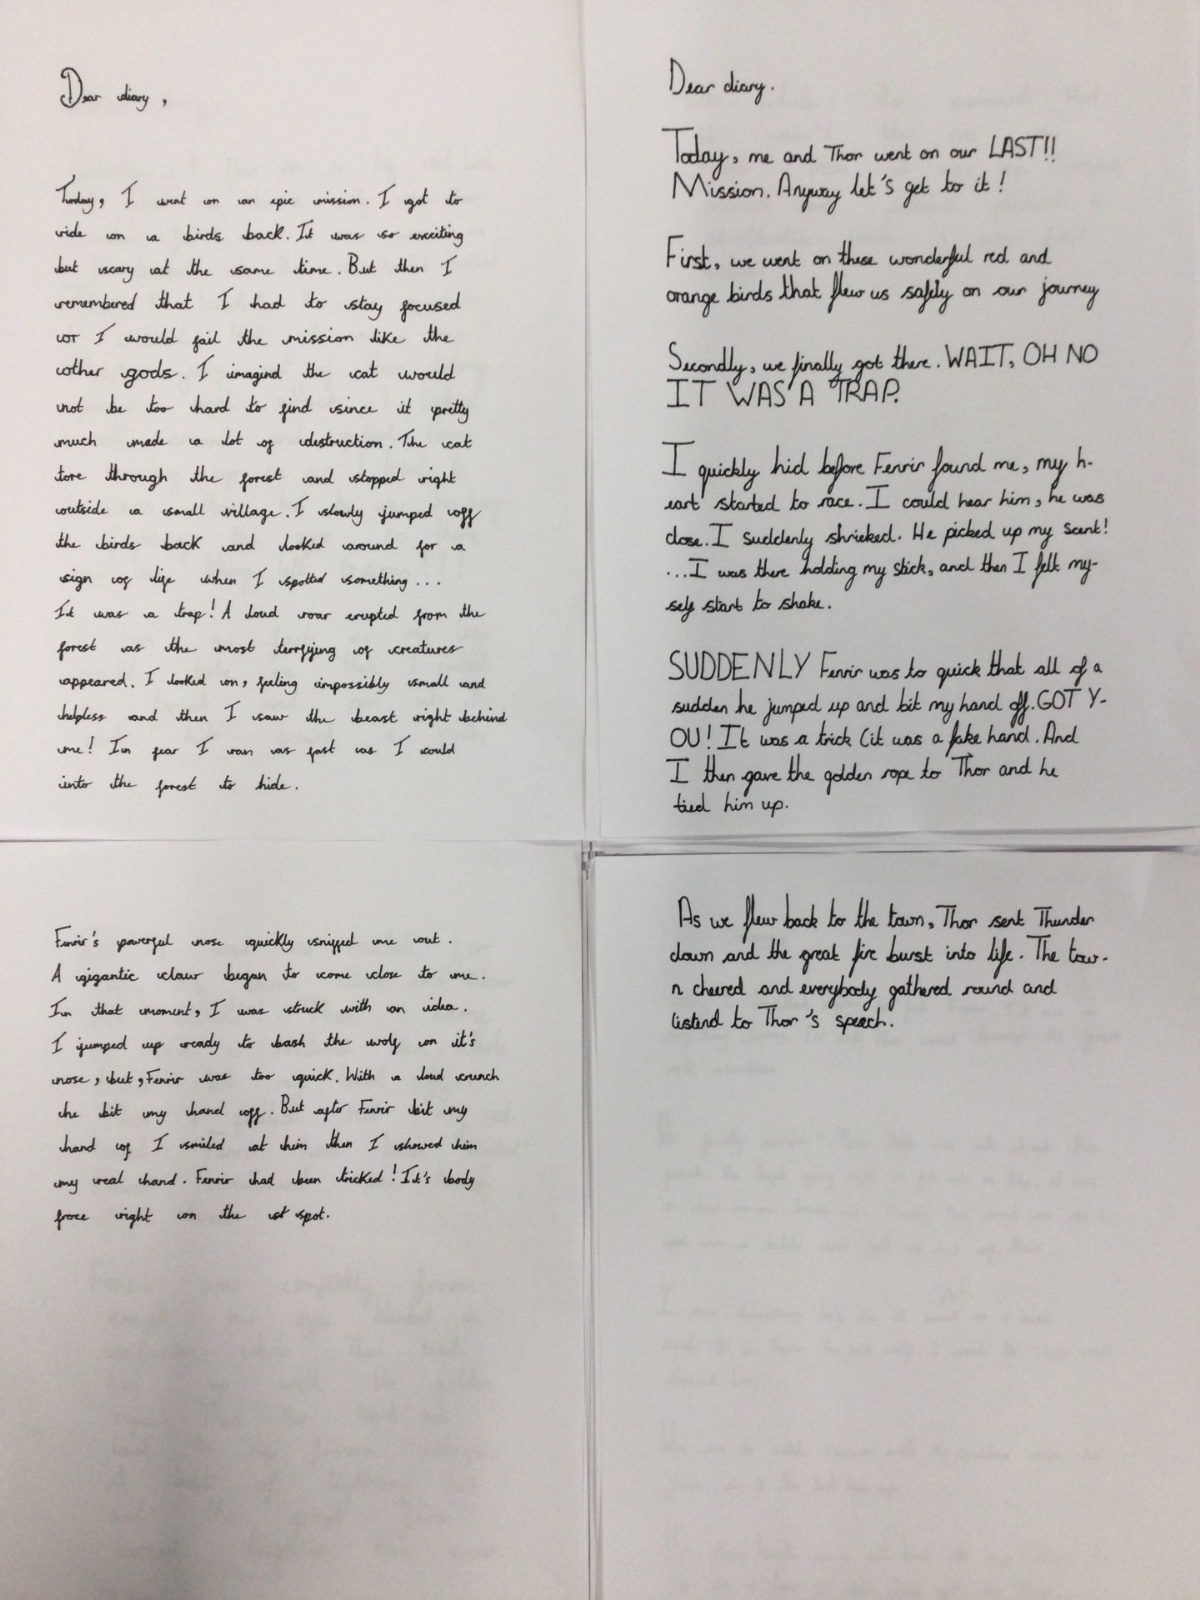 Dear diary,
Today, I went on an epic mission. I got to
ride on a birds back. It was so exciting
but scary at the same time. But then I
remembered that I had to stay focused
or I would fail the mission like the
other gods. I imagind the cat would
not be too hard to find since it pretty
much made a lot of destruction. The cat
tore through the forest and stopped right
outside a small village. I slowly jumped off
the birds back and looked around for a
sign of life when I spotted something...
It was a trap! A loud roar erupted from the
forest as the most terrfying of creatures
appeared. I looked on, feeling impossibly small and
helpless and then I saw the beast right behind
me! In fear I ran as fast as I could
into the forest to hide.
Fenrir's powerful nose quickly sniffed me out.
A gigantic claw began to come close to me.
In that moment, I was struck with an idea.
I jumped up ready to bash the wolf on it's
nose, but, Fenrir was too quick. With a loud crunch
he bit my hand off. But after Fenrir bit my
hand of I smiled at him then I showed him
my real hand. Fenrir had been tricked! It's body
froze right on the spot.
Dear diary.
Today, me and Thor went on our LAST!!
Mission. Anyway let's get to it!
First, we went on these wonderful red and
orange birds that flew us safely on our journey
Secondly, we finally got there. WAIT, OH NO
IT WAS A TRAP.
I quickly hid before Fenrir found me, my h-
eart started to race. I could hear him, he was
close. I suddenly shrieked. He picked up my scent!
...I was there holding my stick, and then I felt my-
self start to shake.
SUDDENLY Fenrir was to quick that all of a
sudden he jumped up and bit my hand off. GOT Y-
OU! It was a trick (it was a fake hand. And
I then gave the golden rope to Thor and he
tied him up.
As we flew back to the town, Thor sent Thunder
down and the great fire burst into life. The tow-
n cheered and everybody gathered round and
listend to Thor's speech.